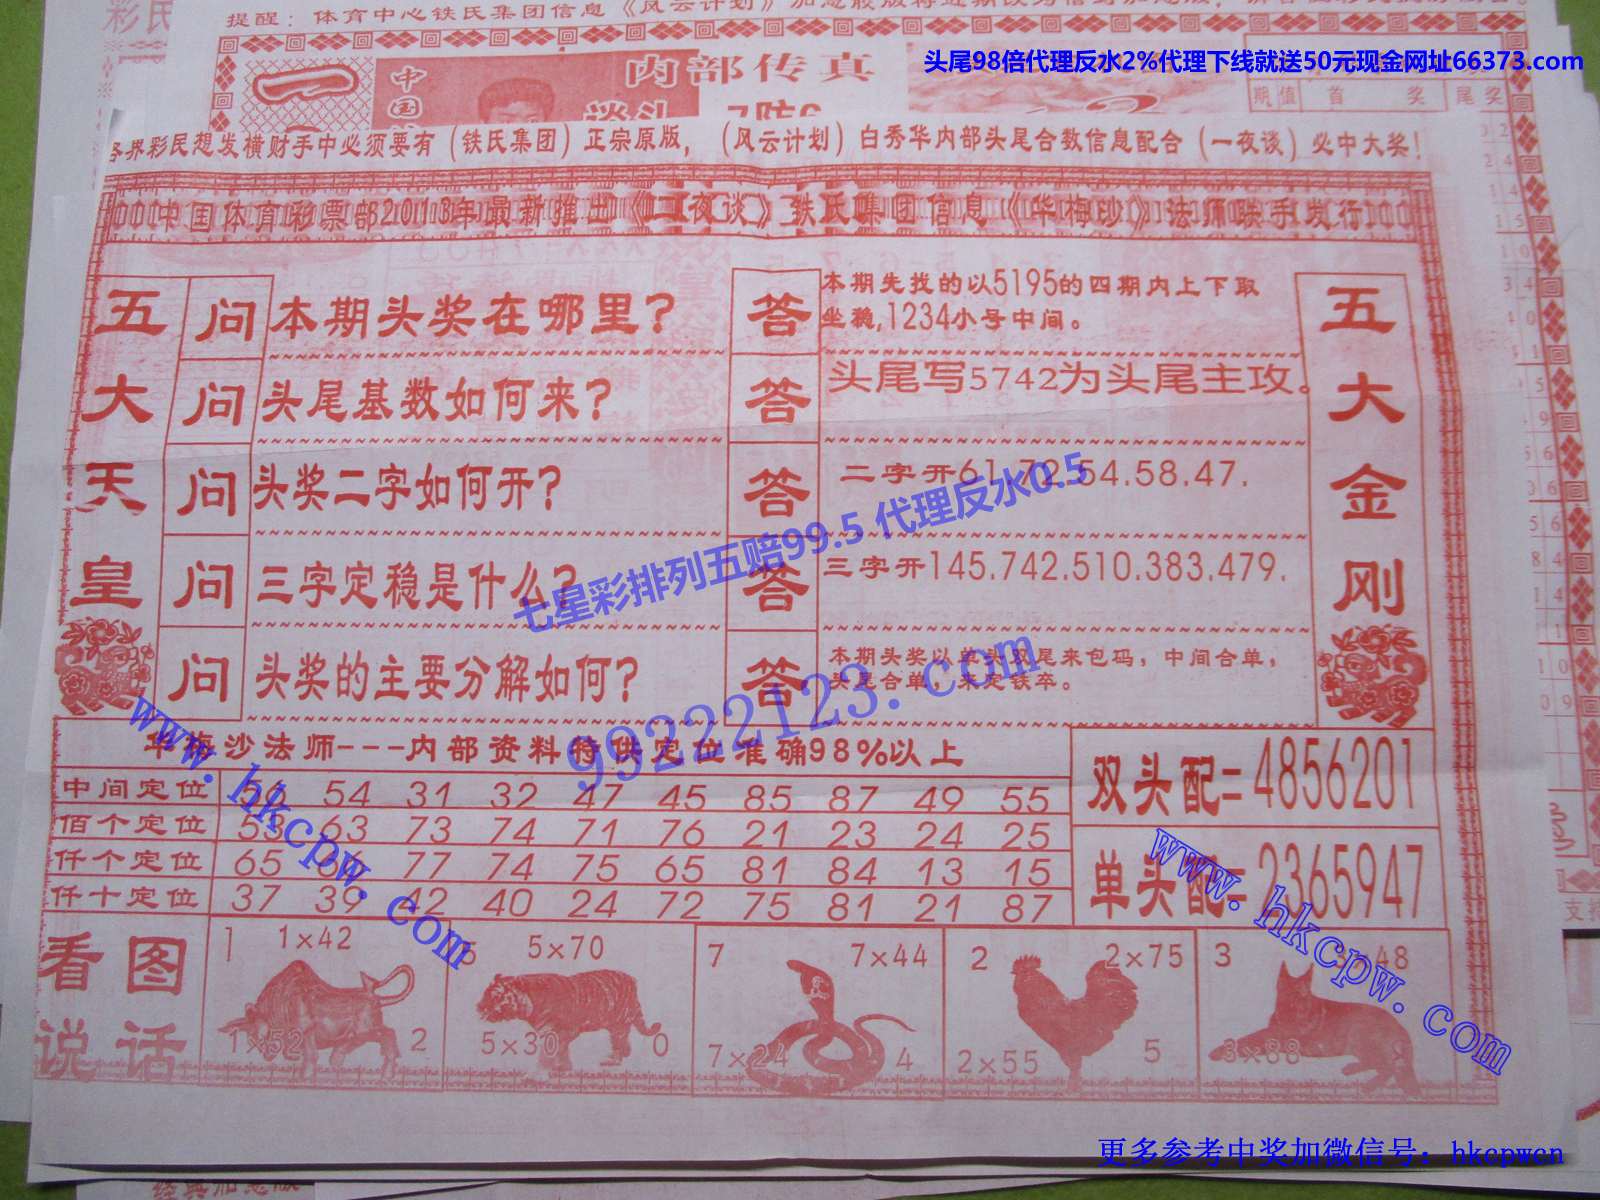 提醒：体育中心铁氏集团信息《风云计划》
头尾98倍代理反水2%代理下线就送50元现金网址66373.com
内部传真
中国
期 值 首 奖 尾 奖
各界彩民想发横财手中必须要有（铁氏集团）正宗原版，（风云计划）白秀华内部头尾合数信息配合（一夜谈）必中大奖！
中国体育彩票部2013年最新推出《一夜谈》铁氏集团信息《华梅沙》法师联手发行
五大天皇
问 本期头奖在哪里？
答 本期先找的以5195的四期内上下取
坐稳,1234小号中间。
问 头尾基数如何来？
答 头尾写5742为头尾主攻。
问 头奖二字如何开？
答 二字开61.72.54.58.47.
问 三字定稳是什么？
答 三字开145.742.510.383.479.
问 头奖的主要分解如何？
答 本期头奖以单头双尾来包码，中间合单，
头尾合单，来定铁卒。
五大金刚
七星彩排列五赔99.5 代理反水0.5
99222123.com
www.hkcpw.com
华梅沙法师---内部资料特供定位准确98%以上
中间定位 54 31 32 47 45 85 87 49 55
佰个定位 53 63 73 74 71 76 21 23 24 25
仟个定位 65 66 77 74 75 65 81 84 13 15
仟十定位 37 39 42 40 24 72 75 81 21 87
双头配=4856201
单头配=2365947
www.hkcpw.com
看图说话
1 1×42
1×52 2
5 5×70
5×30 0
7 7×44
7×24 4
2 2×75
2×55 5
3 3×48
3×88
更多参考中奖加微信号：hkcpwcn